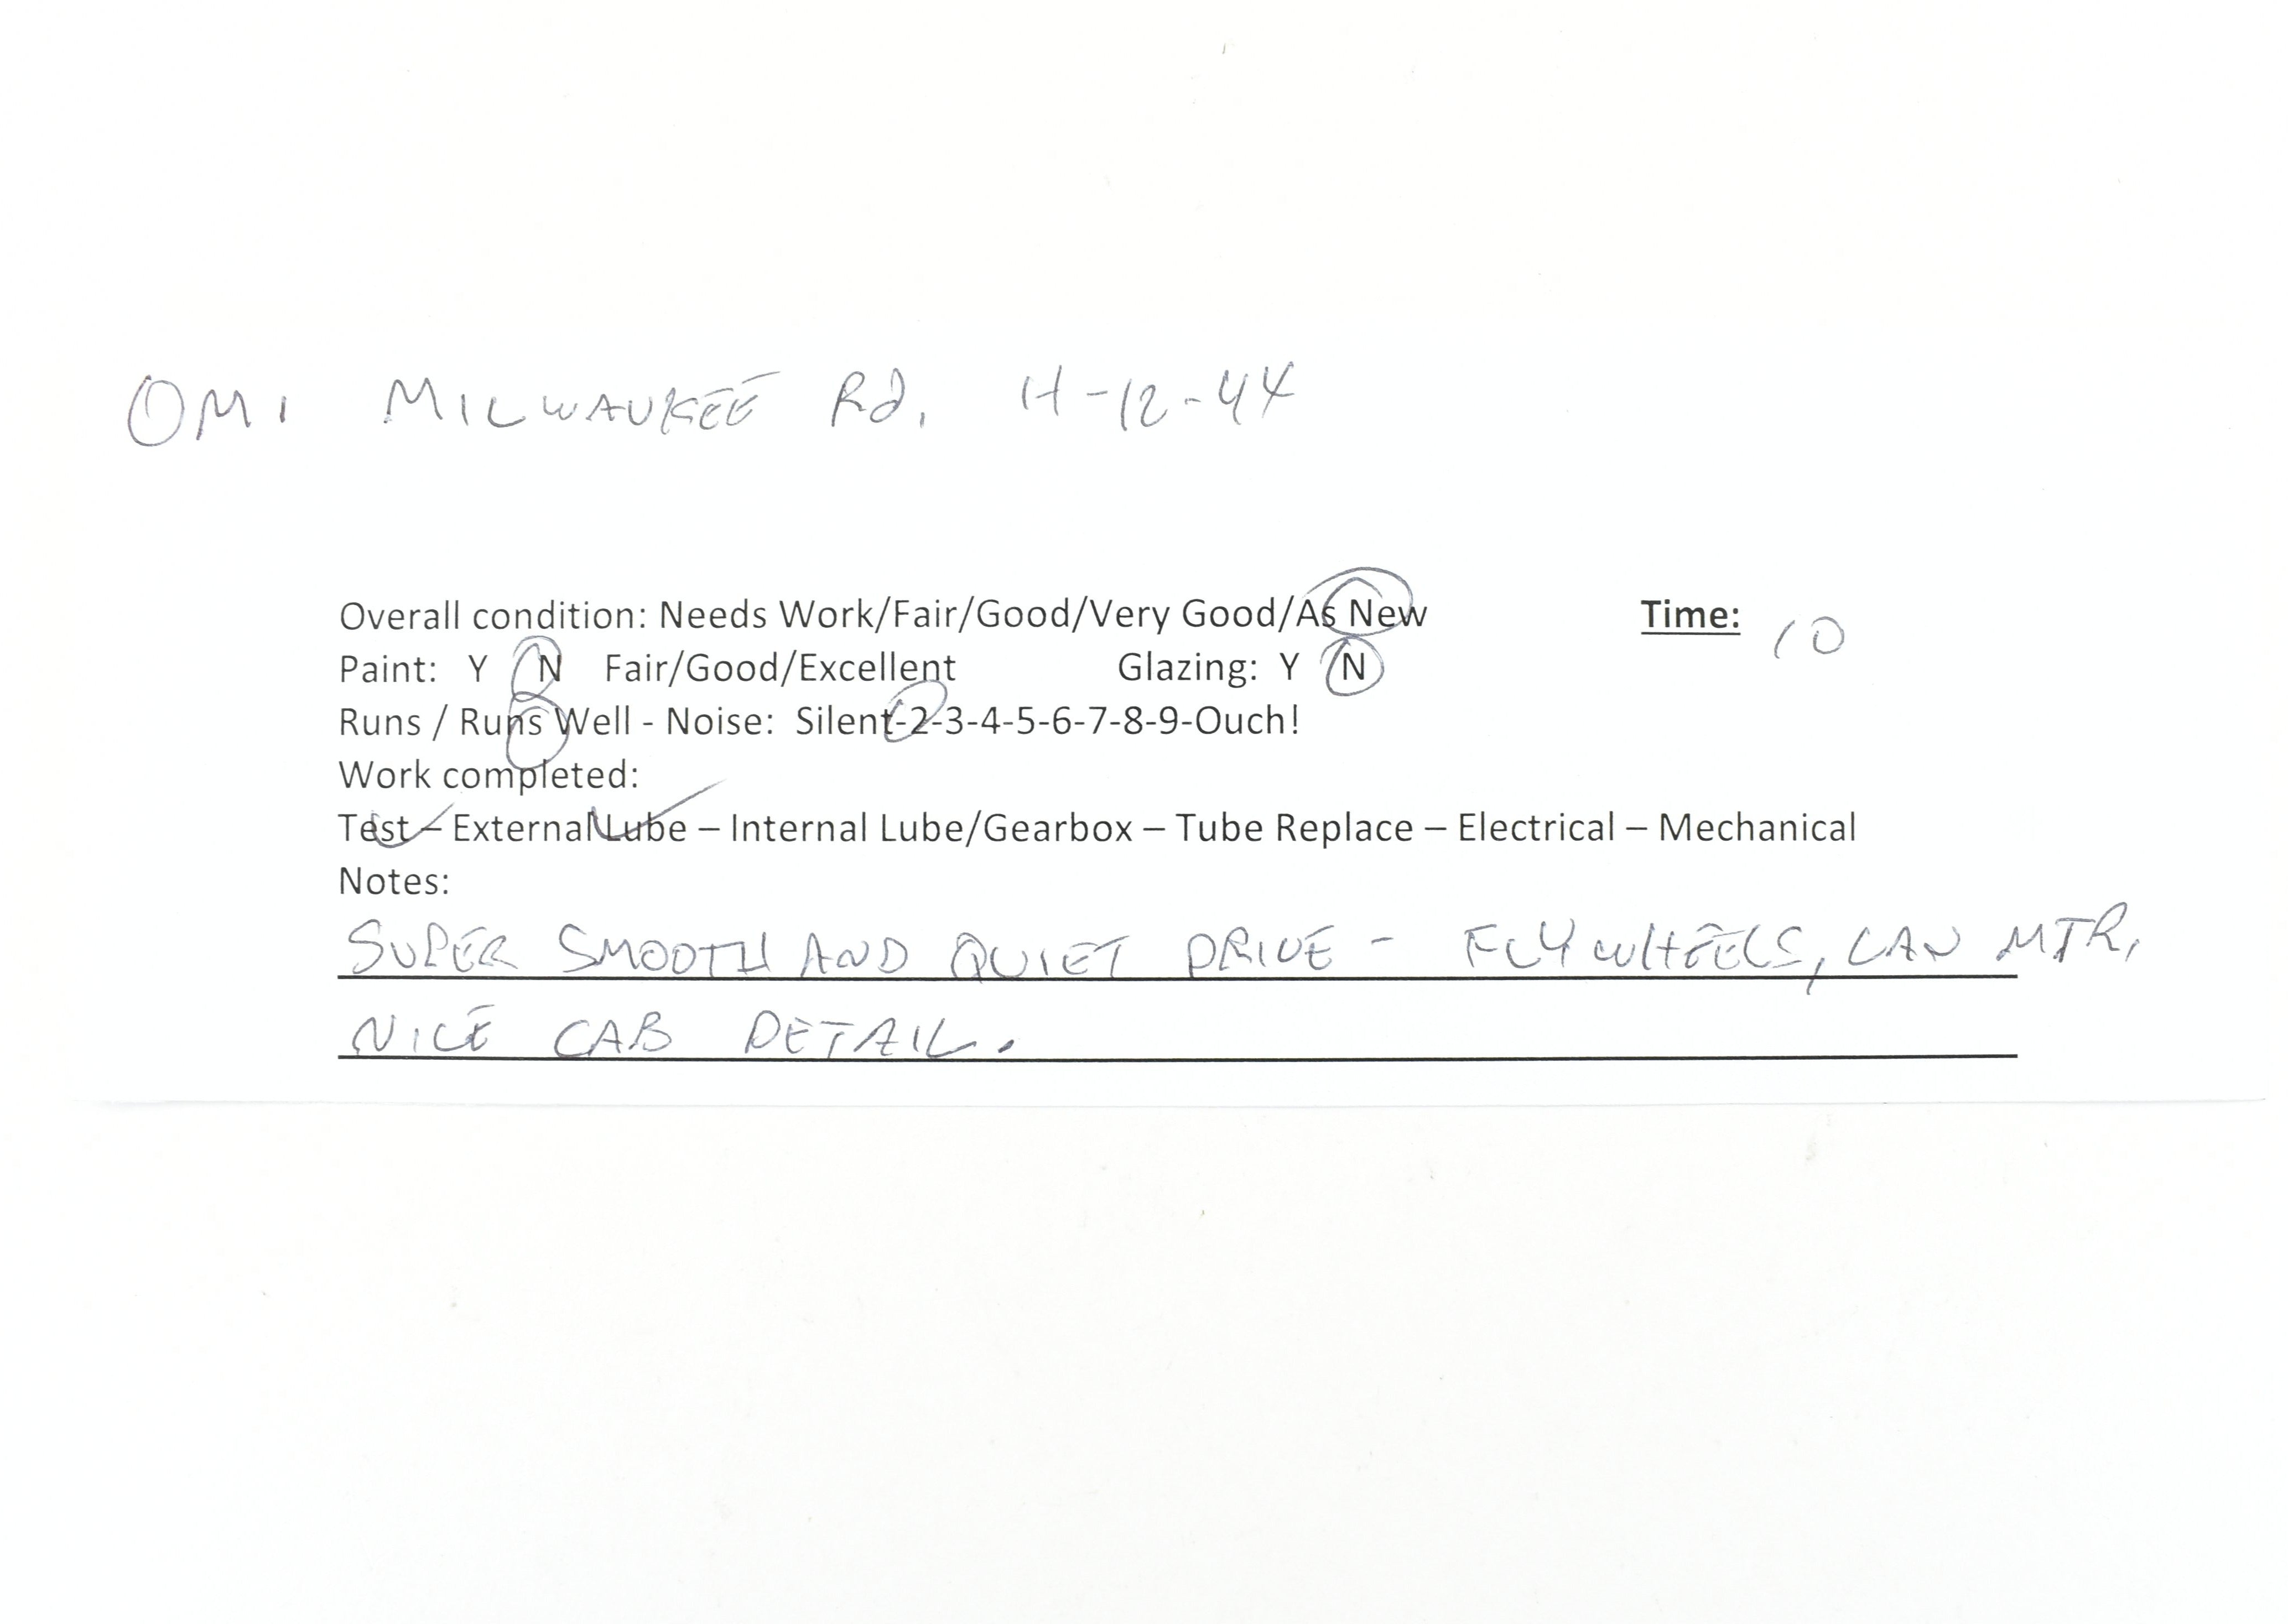 OMI MILWAUKEE Rd. H-12-44
Overall condition: Needs Work/Fair/Good/Very Good/As New Time: 10
Paint: Y N Fair/Good/Excellent Glazing: Y N
Runs / Runs Well - Noise: Silent-2-3-4-5-6-7-8-9-Ouch!
Work completed:
Test – External Lube – Internal Lube/Gearbox – Tube Replace – Electrical – Mechanical
Notes:
SUPER SMOOTH AND QUIET DRIVE - FLYWHEELS, CAN MTR,
NICE CAB DETAIL.